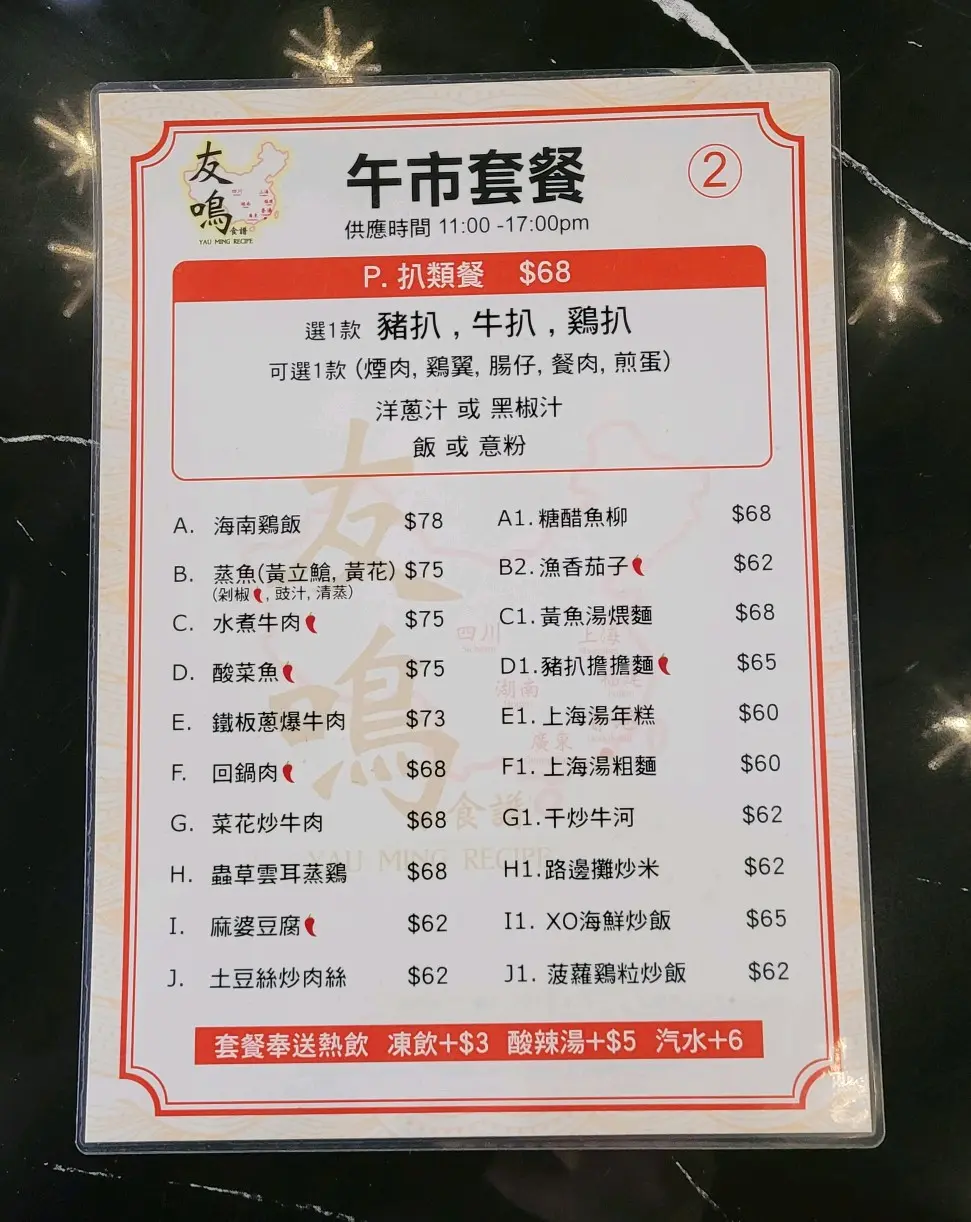 友鳴
食譜
YAU MING RECIPE
午市套餐
②
供應時間 11:00 -17:00pm
P. 扒類餐 $68
選1款 豬扒 , 牛扒 , 鷄扒
可選1款 (煙肉, 鷄翼, 腸仔, 餐肉, 煎蛋)
洋蔥汁 或 黑椒汁
飯 或 意粉
A. 海南鷄飯 $78
B. 蒸魚(黃立鯧, 黃花) $75
(剁椒, 豉汁, 清蒸)
C. 水煮牛肉 $75
D. 酸菜魚 $75
E. 鐵板蔥爆牛肉 $73
F. 回鍋肉 $68
G. 菜花炒牛肉 $68
H. 蟲草雲耳蒸鷄 $68
I. 麻婆豆腐 $62
J. 土豆絲炒肉絲 $62
A1. 糖醋魚柳 $68
B2. 漁香茄子 $62
C1. 黃魚湯煨麵 $68
D1. 豬扒擔擔麵 $65
E1. 上海湯年糕 $60
F1. 上海湯粗麵 $60
G1. 干炒牛河 $62
H1. 路邊攤炒米 $62
I1. XO海鮮炒飯 $65
J1. 菠蘿鷄粒炒飯 $62
友鳴
四川
上海
湖南
廣東
食譜
YAU MING RECIPE
套餐奉送熱飲 凍飲+$3 酸辣湯+$5 汽水+6